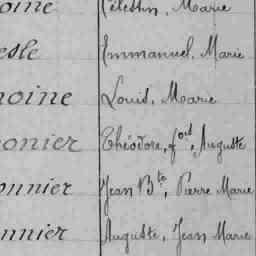 oine Célestin, Marie
esle Emmanuel, Marie
noine Louis, Marie
onier Théodore, fois, Auguste
onnier Jean Bte, Pierre Marie
nnier Auguste, Jean Marie